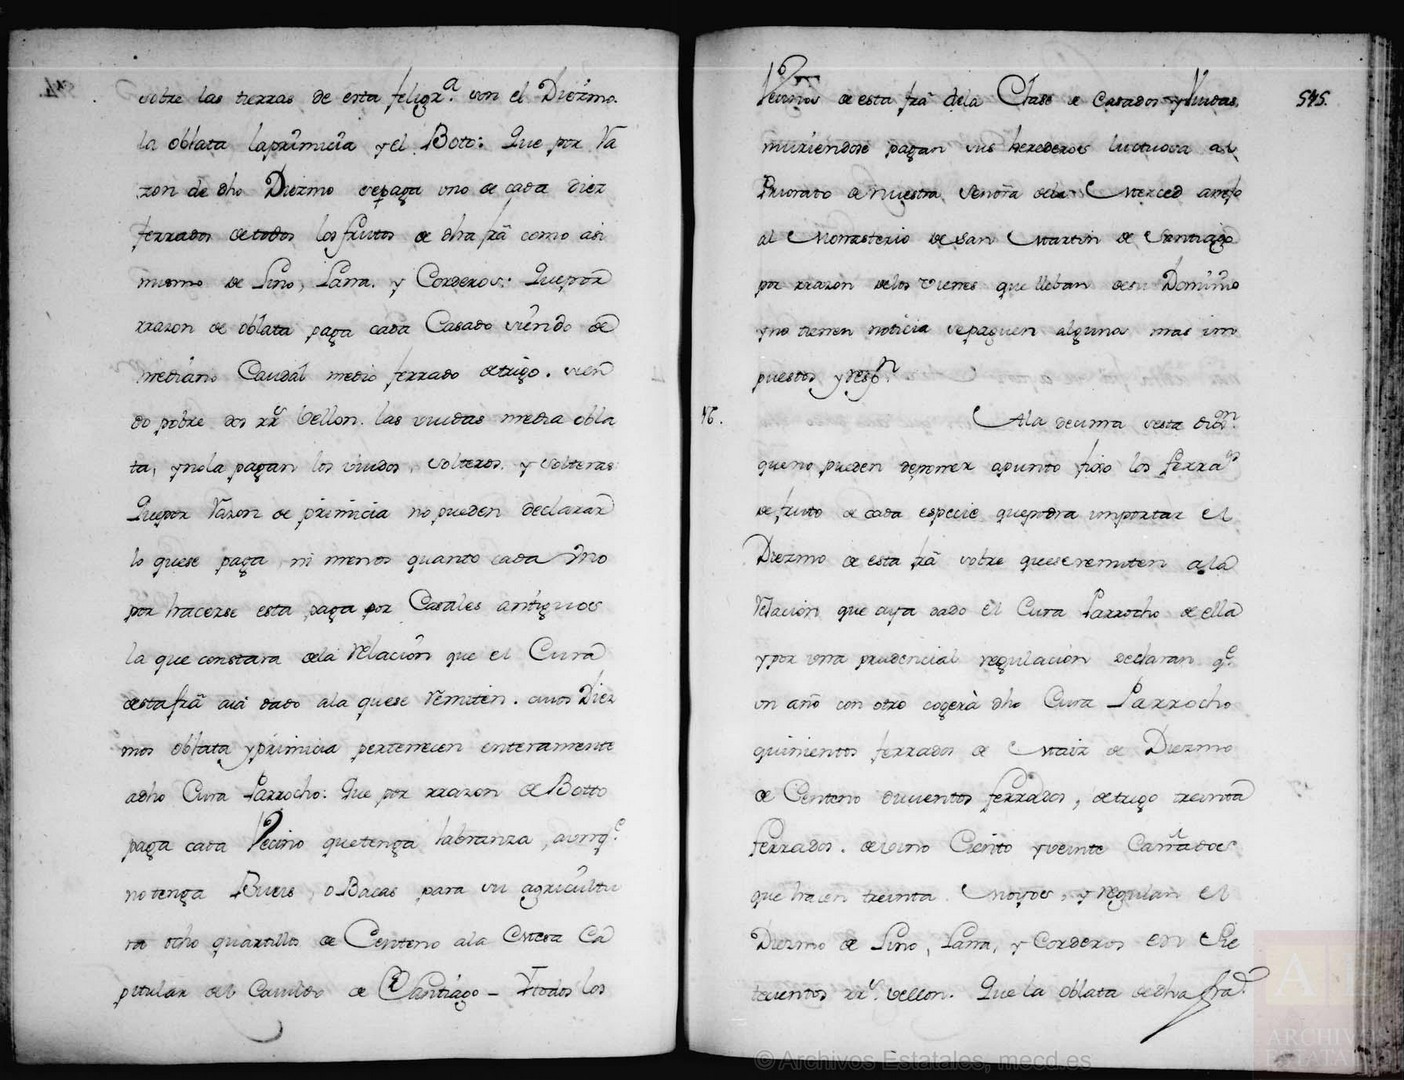 sobre las tierras de esta feligr.ª son el Diezmo
la oblata la primicia y el Boto: Que por Ra
zon de dho Diezmo se paga uno de cada diez
ferrados de todos los frutos de dha frã como asi
mismo de Lino, Lana, y Corderos: Que por
rrazon de oblata paga cada Casado siendo de
mediano Caudal medio ferrado de trigo. sien
do pobre dos rrˢ vellon. las viudas media obla
ta, y no la pagan los viudos, solteros, y solteras
Que por Razon de primicia no pueden declarar
lo que se paga ni menos quanto cada uno
por hacerse esta paga por Casales antiguos
la que constara de la Relacion que el Cura
de esta frã aia dado a la que se Remiten. cuios Diez
mos oblata y primicia pertenecen enteramente
a dho Cura Parrocho: Que por rrazon de Botto
paga cada Vecino que tenga labranza, aunq.ᵉ
no tenga Bueis, o Bacas para su agricultu
ra ocho quartillos de Centeno a la Mesa Ca
pitular del Cavildo de Santiago – Y todos los
545.
Vecinos de esta frã de la Clase de Casados y Viudas
muriendose pagan sus herederos luctuosa al
Priorato de Nuestra Señora de la Merced anejo
al Monasterio de San Martin de Santiago
por rrazon de los vienes que lleban de su Dominio
y no tienen noticia se paguen algunos mas im
puestos y resp.ⁿ
16.
A la decima sesta dix.ⁿ
que no pueden deponer a punto fixo los ferra.ᵒˢ
de fruto de cada especie que podra importar el
Diezmo de esta frã sobre que se remiten a la
Relacion que aya dado el Cura Parrocho de ella
y por una prudencial regulacion declaran q.ᵉ
un año con otro cogerà dho Cura Parrocho
quinientos ferrados de Maiz de Diezmo
de Centeno ducientos ferrados, de trigo treinta
ferrados. de vino Ciento y veinte Cañados
que hacen treinta Moyos, y regulan el
Diezmo de Lino, Lana, y Corderos en Tre
tecientos rr.ˢ vellon. Que la oblata de dha frã
© Archivos Estatales, mecd.es
ARCHIVOS
ESTATALES